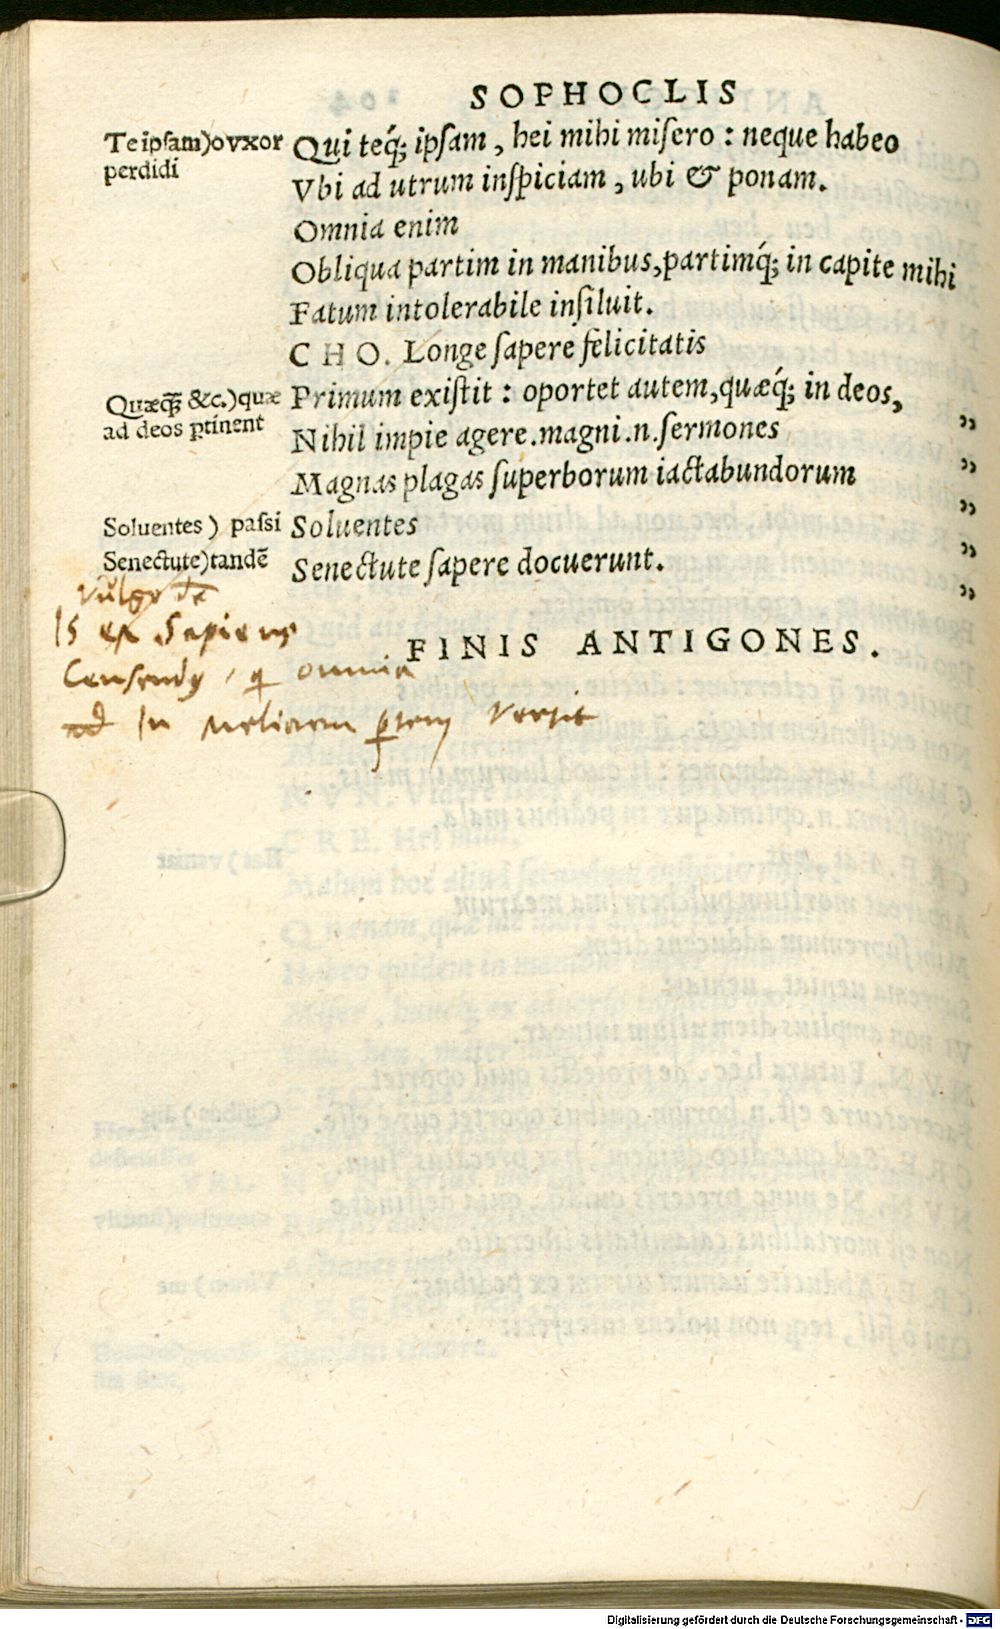 SOPHOCLIS
Te ipsam)o vxor
perdidi
Qui teq́; ipsam, hei mihi misero: neque habeo
Vbi ad utrum inspiciam, ubi & ponam.
Omnia enim
Obliqua partim in manibus, partimq́; in capite mihi
Fatum intolerabile insiluit.
CHO. Longe sapere felicitatis
Quæq̃; &c.)quæ
ad deos ꝑtinent
Primum existit: oportet autem, quæq́; in deos,
Nihil impie agere. magni .n. sermones „
Magnas plagas superborum iactabundorum „
Soluentes) passi
Soluentes „
Senectute)tandẽ
Senectute sapere docuerunt. „
„
Vulgo
Is est Sapiens
FINIS ANTIGONES.
Censendus, qui omnia
ad In meliorem ꝑtem vertit
Digitalisierung gefördert durch die Deutsche Forschungsgemeinschaft - DFG